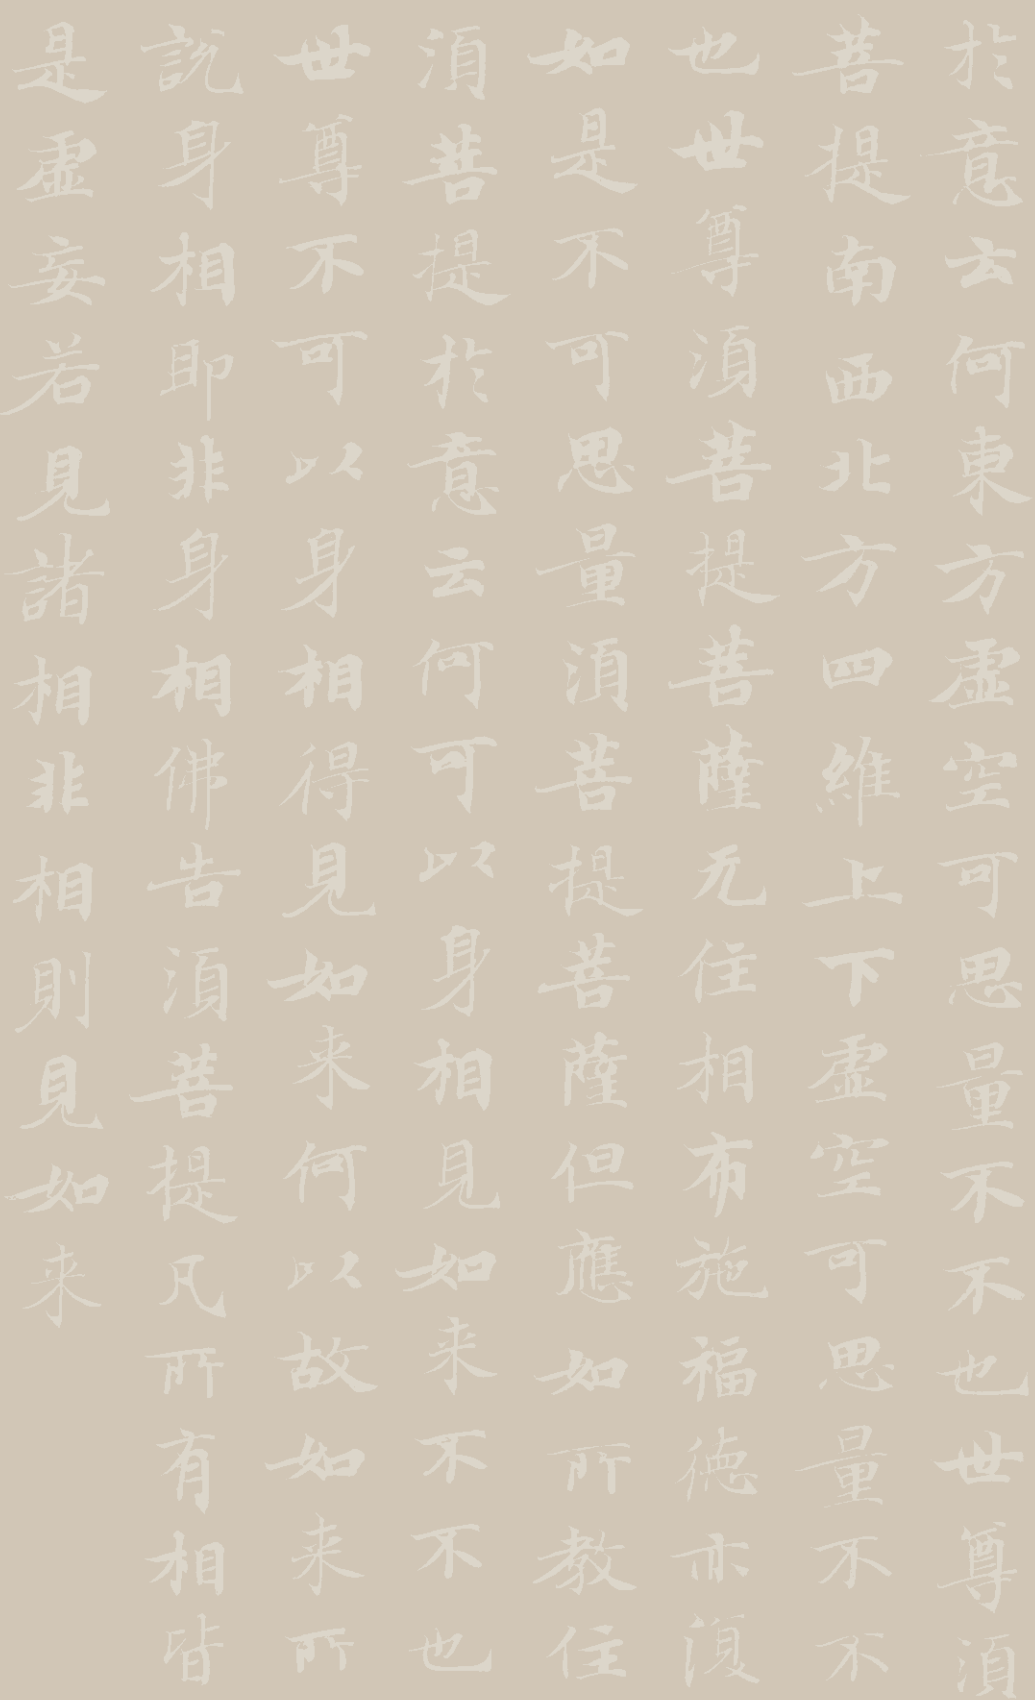 於意云何東方虛空可思量不不也世尊須
菩提南西北方四維上下虛空可思量不不
也世尊須菩提菩薩无住相布施福德亦復
如是不可思量須菩提菩薩但應如所教住
須菩提於意云何可以身相見如来不不也
世尊不可以身相得見如来何以故如来所
說身相即非身相佛告須菩提凡所有相皆
是虛妄若見諸相非相則見如来